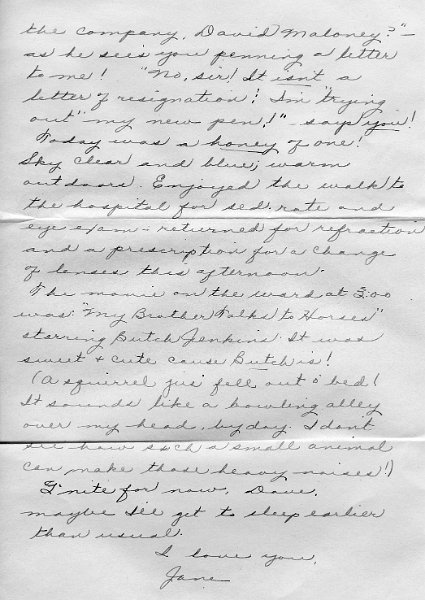 the company, David Maloney?" -
as he sees you penning a letter
to me! "No, sir! It isn't a
letter of resignation! I'm "trying
out" my new pen!" - says you!
Today was a honey of one!
Sky clear and blue; warm
outdoors. Enjoyed the walk to
the hospital for sed. rate and
eye exam - returned for refraction
and a prescription for a change
of lenses this afternoon.
The movie on the ward at 3:00
was "My Brother Talks to Horses"
starring Butch Jenkins. It was
sweet + cute cause Butch is!
(A squirrel jus' fell out o' bed!
It sounds like a bowling alley
over my head, by day. I don't
see how such a small animal
can make those heavy noises!)
G'nite for now, Dave,
maybe I'll get to sleep earlier
than usual.
I love you,
Jane